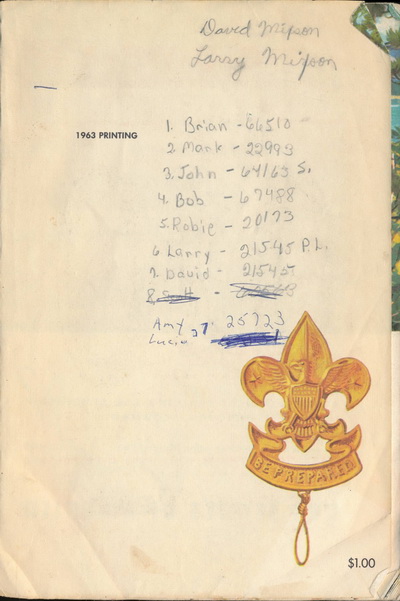 David Mixson
Larry Mixson
1963 PRINTING
1. Brian - 66510
2. Mark - 22993
3. John - 64163 S.
4. Bob - 67488
5. Robie - 20173
6 Larry - 21545 P.L.
7. David - 21545
8.
Amy 27. 25723
Lucia
BE PREPARED
$1.00